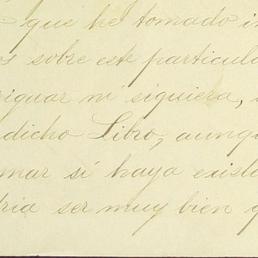 que he tomado in
s sobre este particula
iguar ni siquiera,
dicho Libro, aunq
mar si haya exist
ria ser muy bien q